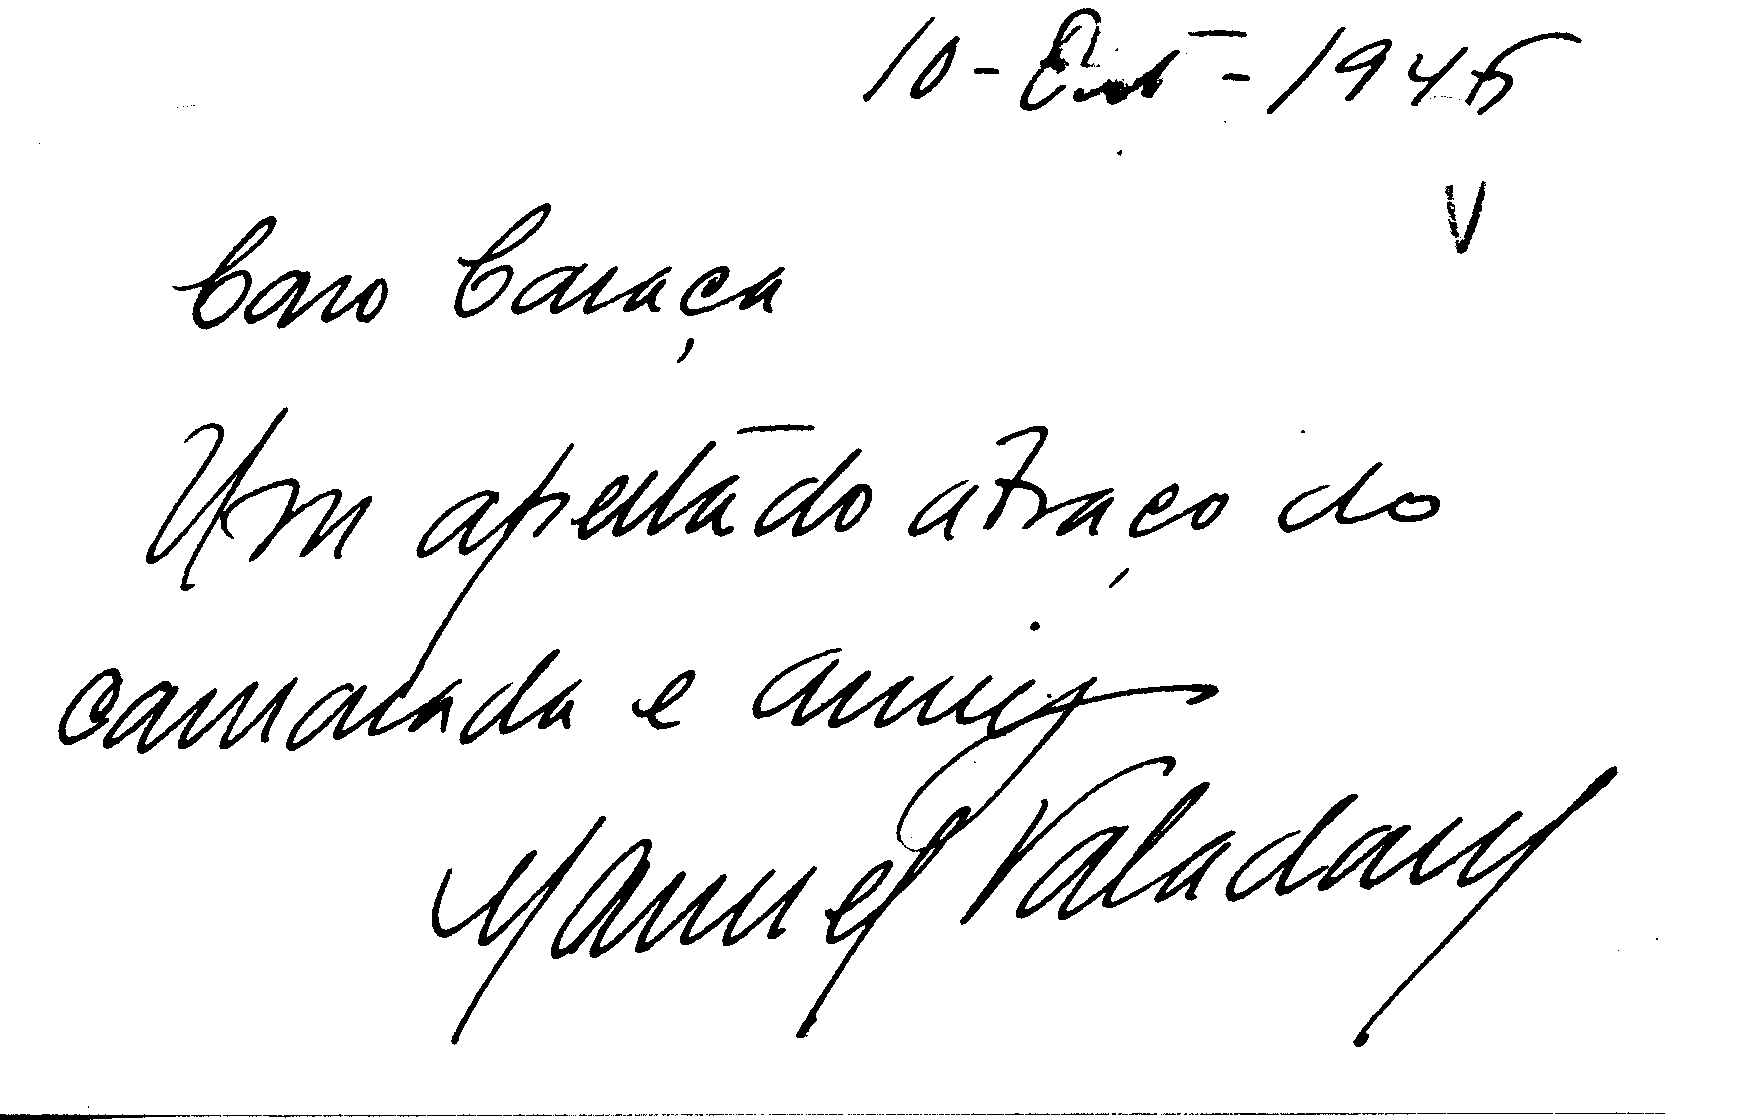 10-Out-1945
V
Caro Caraça
Um apertado abraço do
camarada e amigo
Manuel Valadares